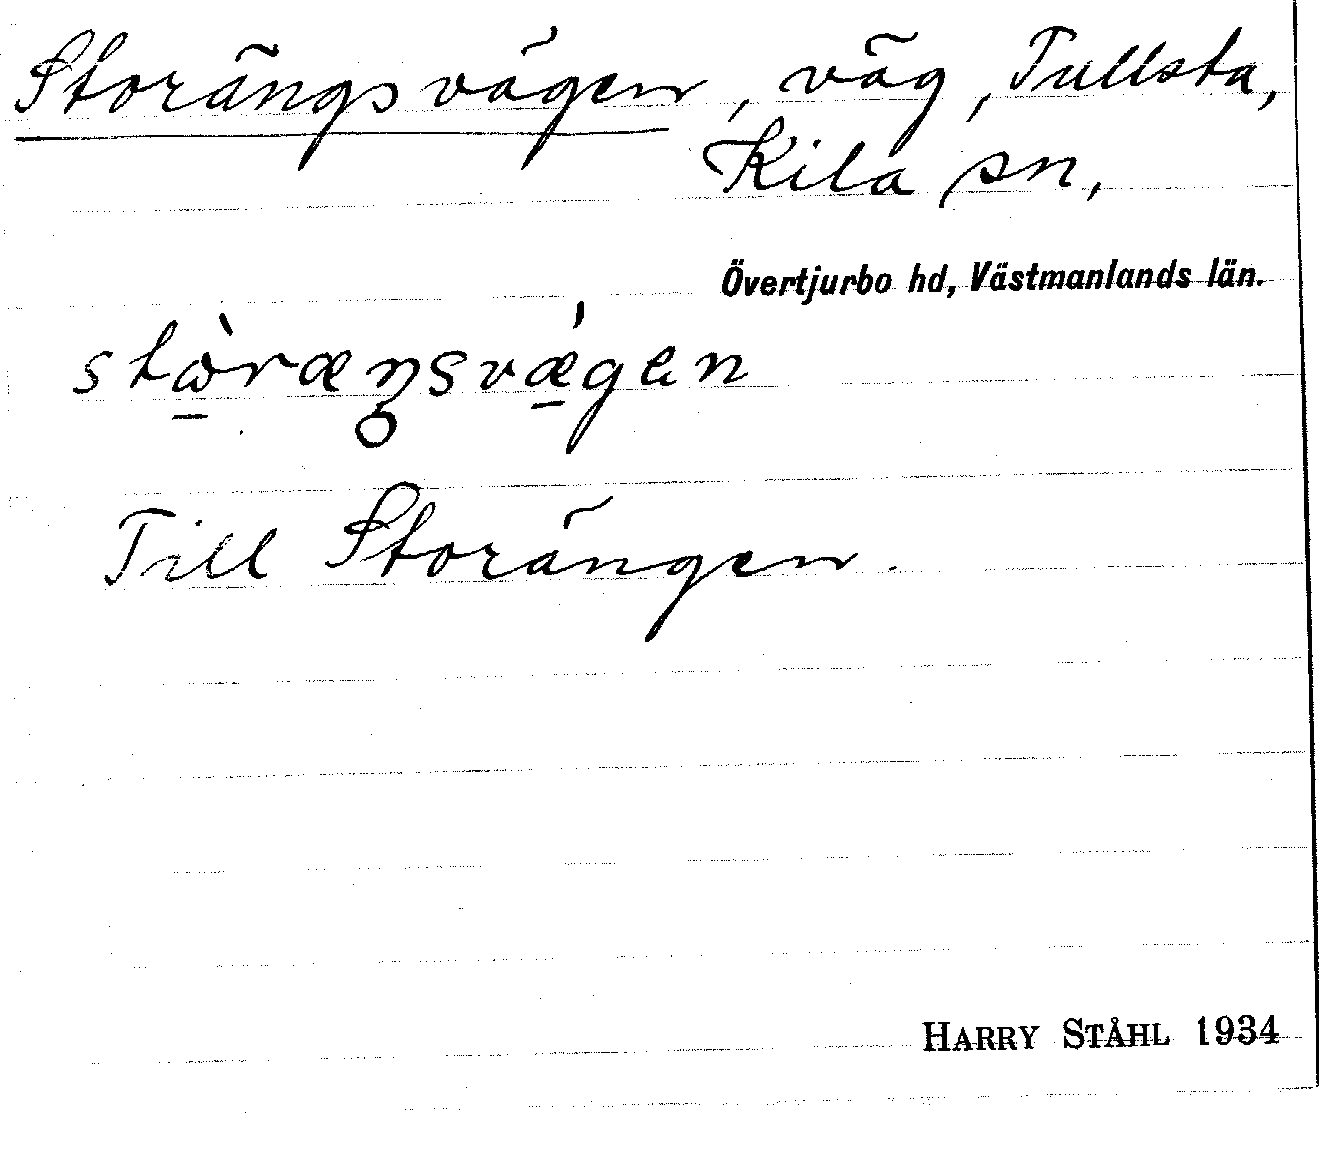 Storängsvägen, väg, Tullsta,
Kila sn,
Övertjurbo hd, Västmanlands län.
stὼ̱ræŋsvǽ̱gen
Till Storängen.
HARRY STÅHL 1934